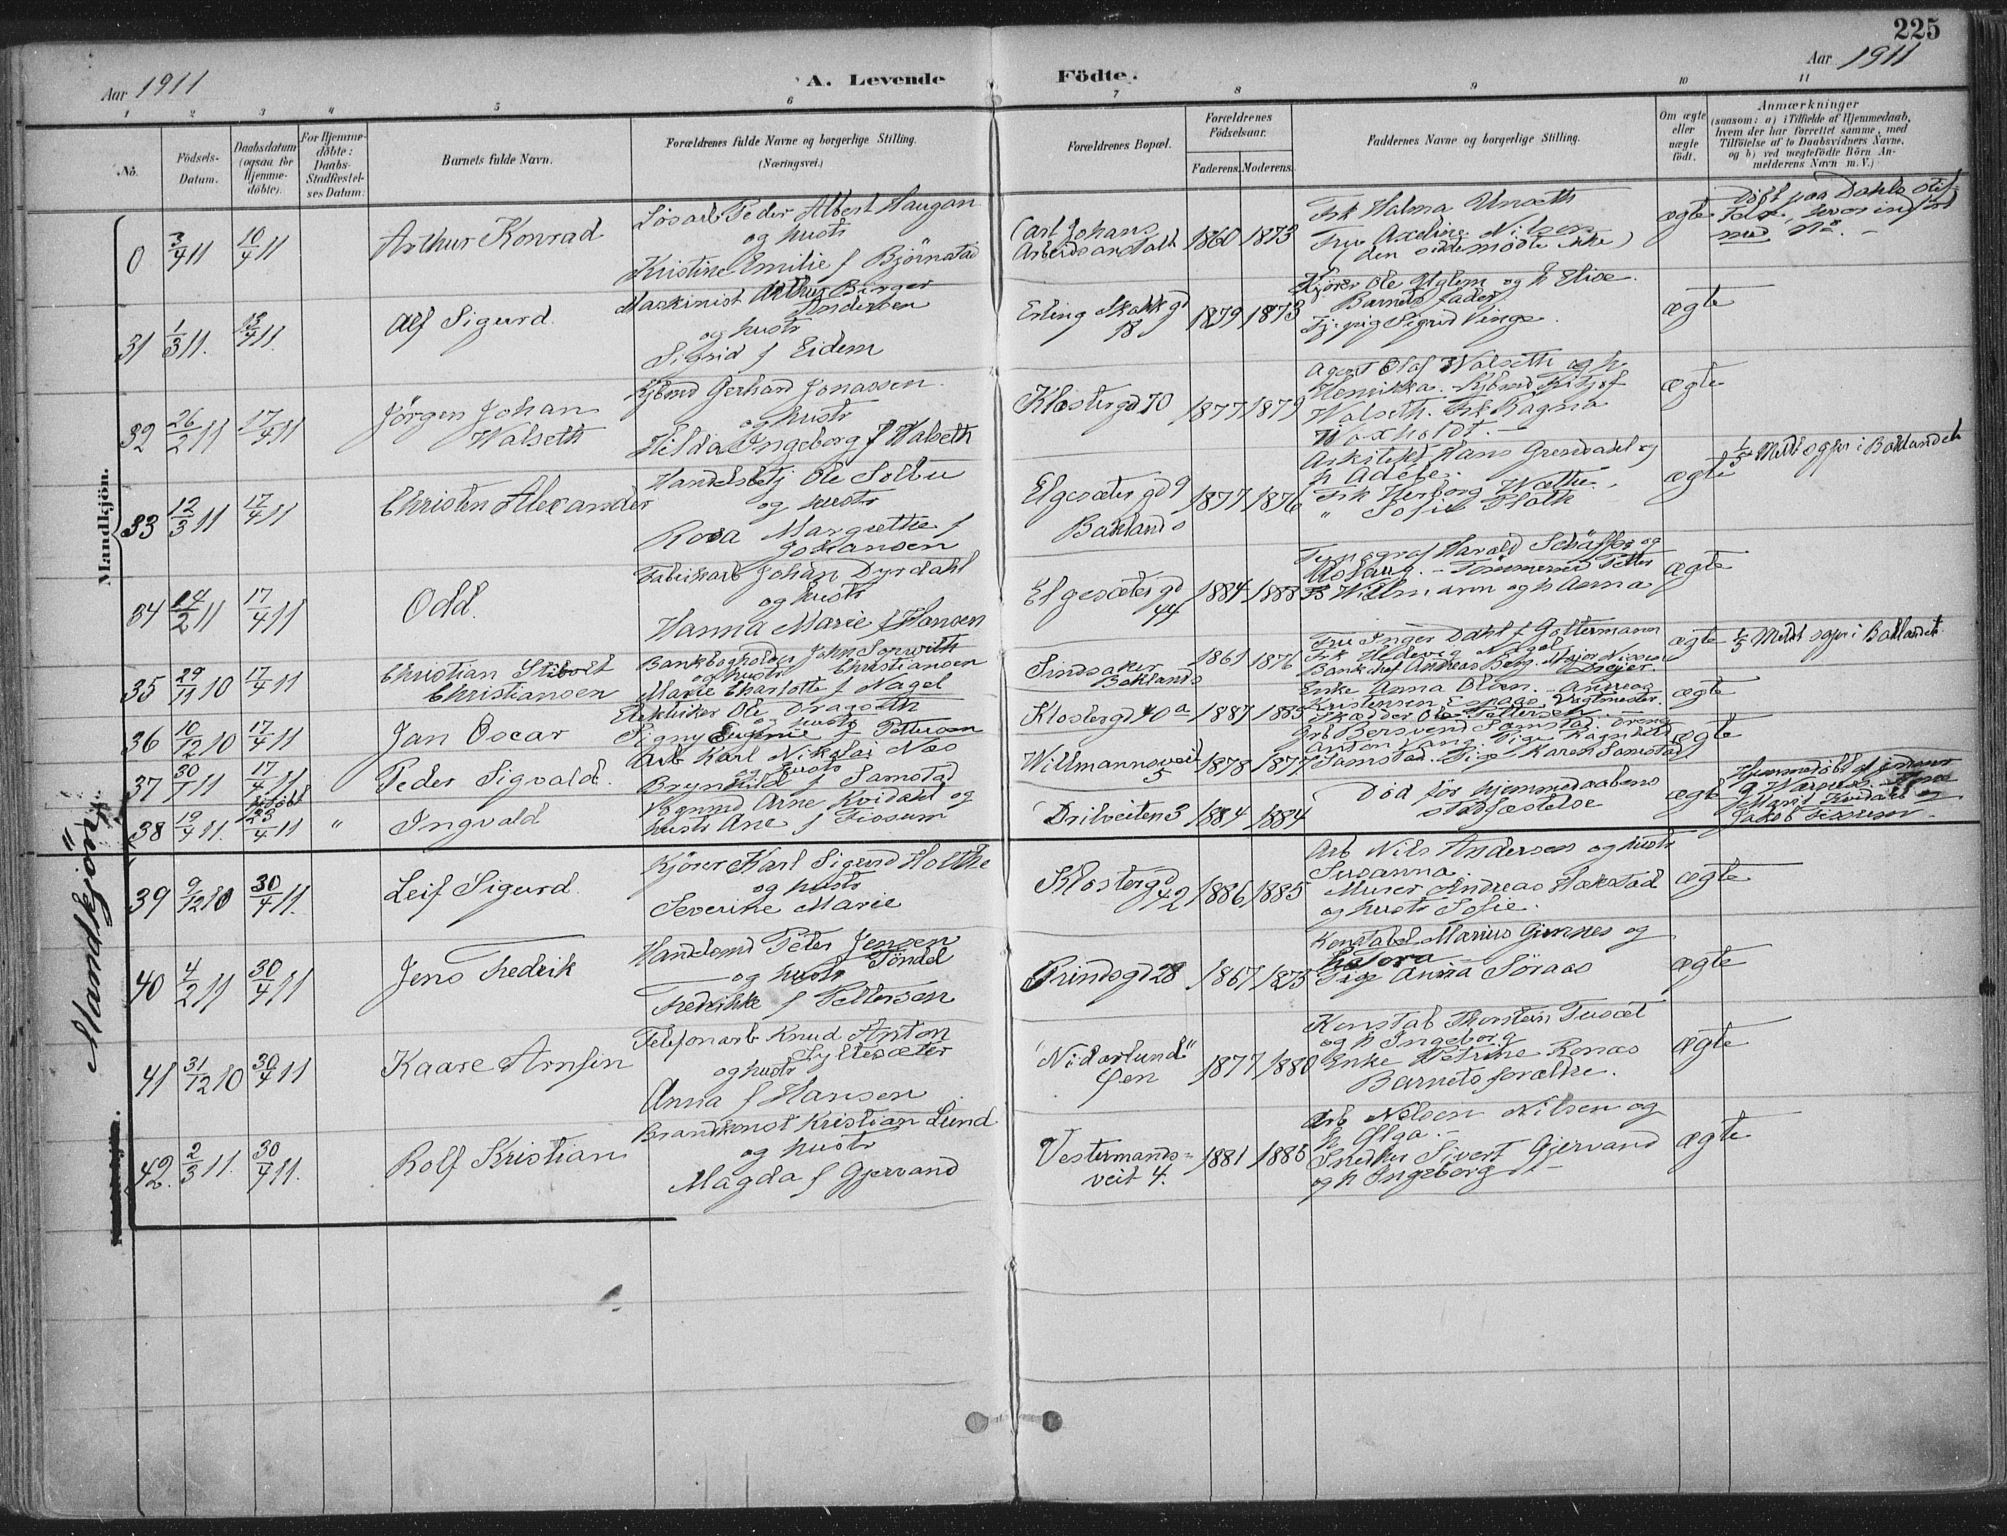 225
Aar 1911
A. Levende Födte.
Aar 1911
1 2 3 4 5 6 7 8 9 10 11
No.
Födsels-Datum.
Daabsdatum (ogsaa for Hjemme-döbte).
For Hjemme-döbte: Daabs-Stadfæstel-ses Datum.
Barnets fulde Navn.
Forældrenes fulde Navne og borgerlige Stilling. (Næringsvei.)
Forældrenes Bopæl.
Forældrenes Födselsaar.
Faderens. Moderens.
Faddernes Navne og borgerlige Stilling.
Om ægte eller uægte födt.
Anmærkninger
(saasom: a) i Tilfælde af Hjemmedaab,
hvem der har forrettet samme, med
Tilföielse af to Daabsvidners Navne,
og b) ved uægtefödte Börn An-
melderens Navn m. V.)
Mandkjön.
0 3/4 11 10/4 11 Arthur Konrad
Løsarb Peder Albert Haugan
og hustr
Kristine Emilie f Bjørnstad
Carl Johans
Arbeidsanstalt
1860 1873
Frk Halma Unseth
Fru Axeline Nilsen
(den sidste mødte ikke)
ægte
Døbt paa Dahls stif-
telse, hvor indført
med No. -
31 1/3 11. 13/4 11. Alf Sigurd.
Maskinist Arthur Birger
Andersen
og hustr
Sigrid f Eidem
Erling Skakkgd
18
1879 1873
Kjører Ole Uglem og h Elise.
Barnets fader
Tjpig Sigrid Vinge.
ægte
32 26/2 11 17/4 11 Jörgen Johan
Walseth
Kjbmd Gerhard Jonassen.
og hustr
Hilda Ingeborg f Walseth
Klostergd 70
1877 1879
Agent Olaf Walseth og h.
Henrikka. Kjbmd Fritjof
Walseth. Frk Ragna
Waxholdt. -
ægte
33 12/3 11 17/4 11 Christen Alexander
Handelsbetj Ole Solbu
og hustr
Rosa Margrethe f
Johansen
Elgesæter gd 9
Bakland
1877 1876
Arkitekt Hans Grendahl og
h Adele.
Frk Herborg Wæthe.
" Sofie Flath
ægte
1/5 Meldt sogpr i Baklandet
34 14/2 11 17/4 11 Odd.
Fabrikarb Johan Dyrdahl
og hustr
Hanna Marie f Hansen
Elgesæter gd
44
1884 1888
Typograf Harald Schäffer og
Aslaug. - Tömmermd Petter
B Willmann og h Anna
ægte
35 29/11 10 17/4 11 Christian Stibolt
Christiansen
Bankbogholder John Sorwith
Christiansen
og hustr
Marie Charlotte f Nagel
Sindsaker
Baklands
1861 1876
Fru Inger Dahl f Gottermann
Frk Hedevig Nagel
Bankchef Andreas Berg. Major Nissen
Dreyer
ægte
1/5 Meldt sogpr i Baklandet
36 10/12 10 17/4 11 Jan Oscar
Elektriker Ole Dragseth
og hustr
Signy Eugenie f Petterson
Klostergd 40 a
1887 1885
Enke Anna Olsen. - Andreas
Kristensen Espaas Vagtmester.
Skrædder Ole Pettersen
ægte
37 30/1 11 17/4 11 Peder Sigvald.
Arb Karl Nikolai Næs
og hustr
Brynhild f Samstad
Willmannsveit
5
1878 1877
Arb Bersvend Samstad. Dreng
Anton Vang Pige Ragnhild
Samstad. Pige Karen Samstad
ægte
38 19/4 11. 23/4 11 " Ingvald
Kjørmd Arne Kvidahl og
hustr Ane f Fiosum
Drilveiten 3
1884 1884
Död för hjemmedaabens
stadfæstelse
ægte
Hjemmedøbt af
Marit Kvidahl og
Jakob
Mandkjön.
39 9/12 10 30/4 11. Leif Sigurd.
Kjører Karl Sigurd Holthe
og hustr
Severine Marie
Klostergd
42
1886 1885
Arb Nils Andersen og hustr
Susanna
Murer Andreas Hakstad
og hustr Sofie.
ægte
40 4/2 11 30/4 11 Jens Fredrik
Handelsmd Peter Jensen
Töndel
og hustr
Fredrikke f Pettersen
Prindsgd 28
1867 1875
Konstabel Marius Gimnes og
h Tora -
Pige Anna Söraas
ægte
41 31/12 10 30/4 11 Kaare Arnfin
Telefonarb Knud Anton
Syltesæter
og hustr
Anna f Hansen
"Nidarlund"
Øen
1877 1880
Konstab Thorstein Tuset
og h Ingeborg
Enke Petrine Renaas
Barnets forældre.
ægte
42. 2/3 11. 30/4 11. Rolf Kristian
Brandkonst Kristian Lund
og hustr
Magda f Gjervand
Vestermands-
veit 4.
1881 1885
Arb Nilsen Nilsen og
h Olga. -
Snedker Sivert Gjervand
og h Ingeborg -
ægte